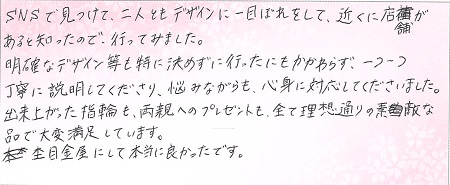 SNSで見つけて、二人ともデザインに一目ぼれをして、近くに店舗が
あると知ったので、行ってみました。
明確なデザイン等も特に決めずに行ったにもかかわらず、一つ一つ
丁寧に説明してくださり、悩みながらも、心身に対応してくださいました。
出来上がった指輪も、両親へのプレゼントも、全て理想通りの素敵な
品で大変満足しています。
杢目金屋にして本当に良かったです。